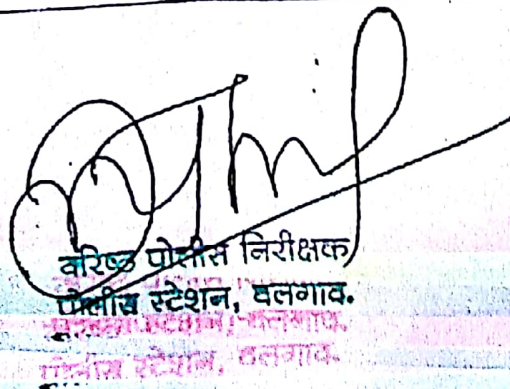 वरिष्ठ पोलीस निरीक्षक
पोलीस स्टेशन, वलगाव.
पोलीस स्टेशन, वलगाव.